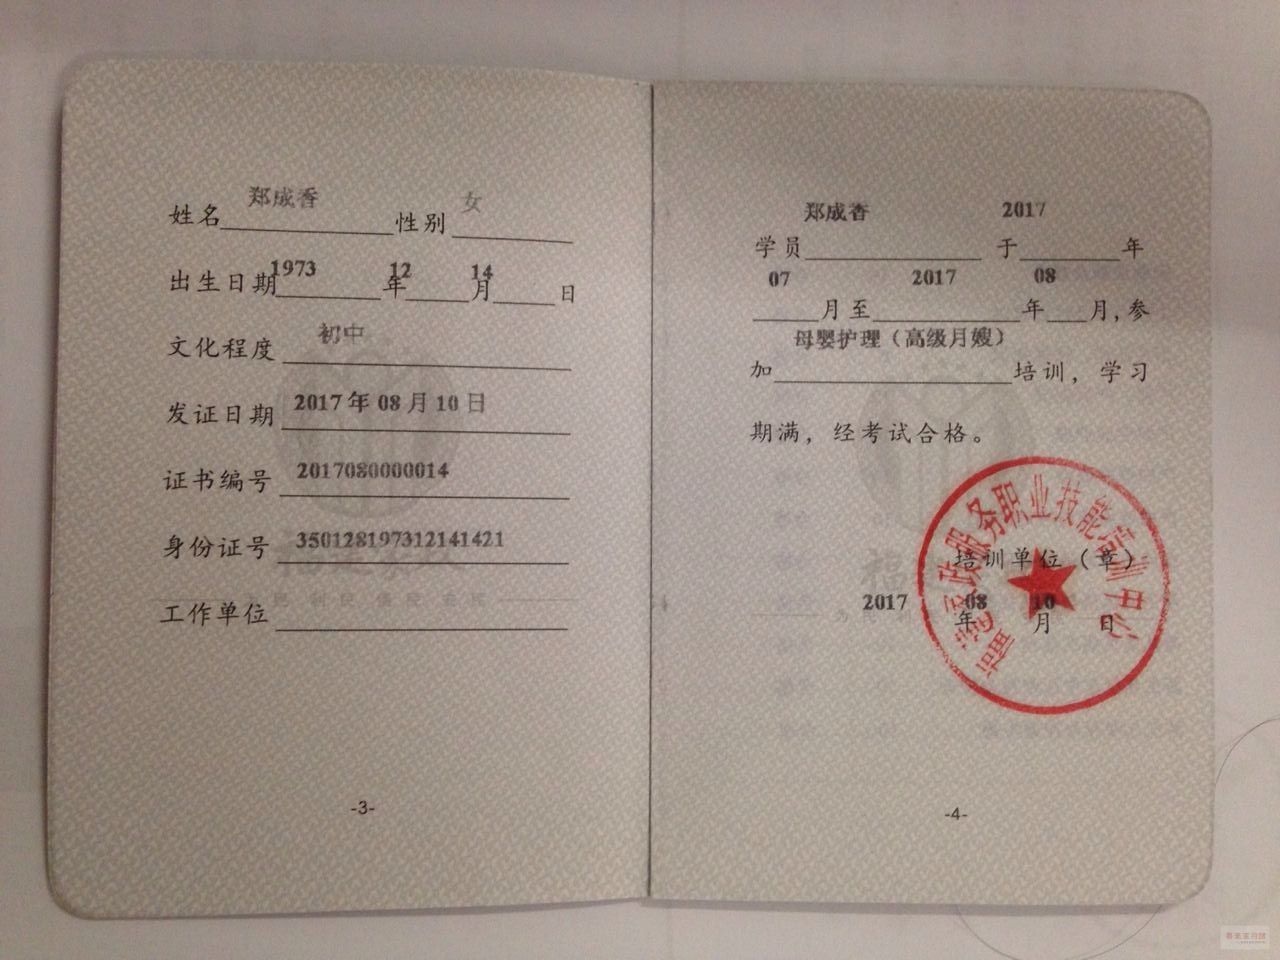 姓名 郑成香 性别 女
出生日期 1973 年 12 月 14 日
文化程度 初中
发证日期 2017年08月10日
证书编号 2017080000014
身份证号 350128197312141421
工作单位
-3-
学员 郑成香 于 2017 年
07 月至 2017 年 08 月,参
加 母婴护理（高级月嫂） 培训，学习
期满，经考试合格。
家政服务职业技能培训中心
培训单位（章）
2017 年 08 月 10 日
-4-